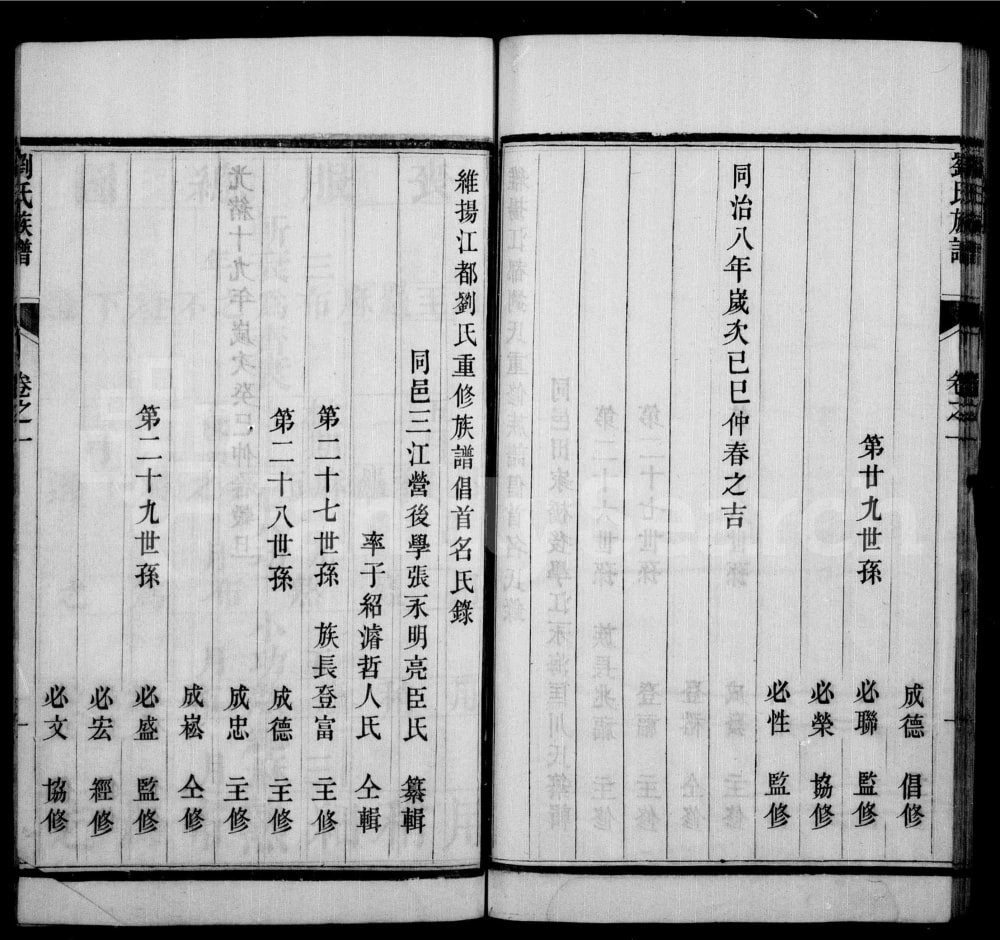 劉氏族譜
卷之一
成德 倡修
第廿九世孫 必聯 監修
必榮 協修
必性 監修
同治八年嵗次己巳仲春之吉
維揚江都劉氏重修族譜倡首名氏錄
同邑三江營後學張永明亮臣氏 纂輯
率子紹濬哲人氏 仝輯
第二十七世孫 族長登富 主修
第二十八世孫 成德 主修
成忠 主修
成崧 仝修
第二十九世孫 必盛 監修
必宏 經修
必文 協修
劉氏族譜
卷之一